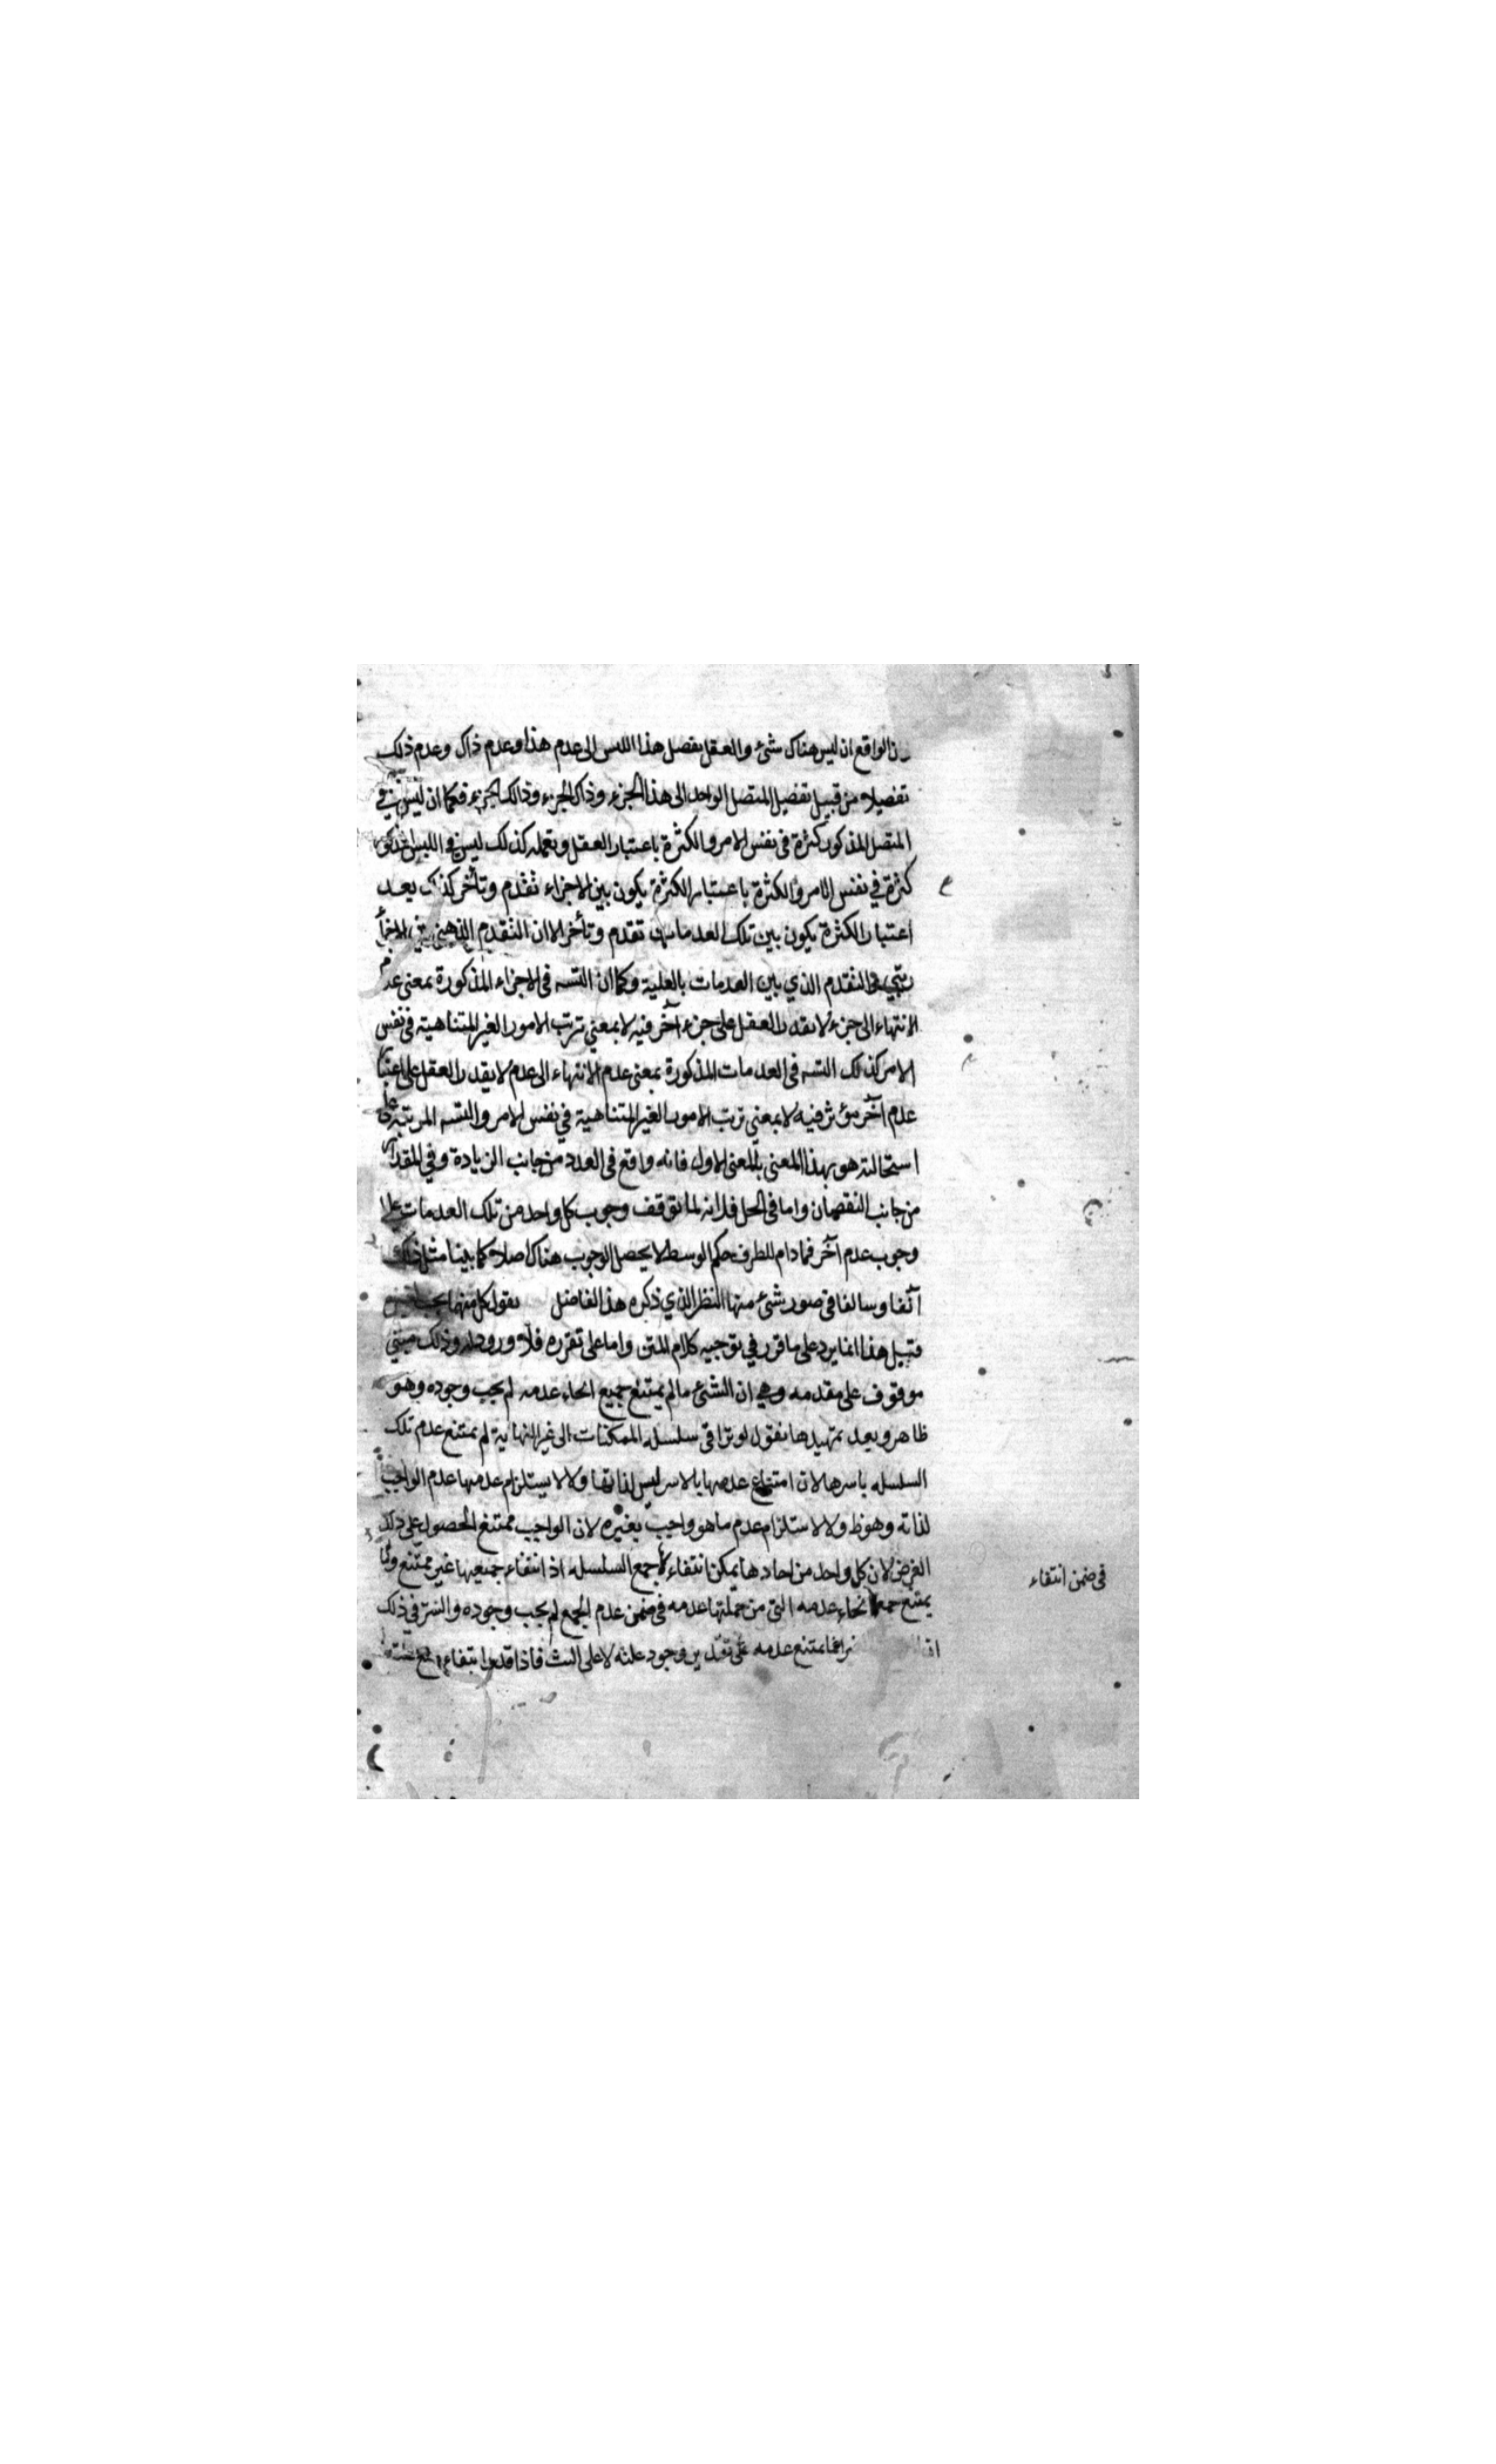 الواقع ان ليس هناك شئ والعقل يفصل هذا الليس الى عدم هذا وعدم ذاك وعدم ذلك
تفصيلا من قبيل تفصيل المتصل الواحد الى هذا الجزء وذاك الجزء وذالك الجزء فكما ان ليس في
المتصل المذكور كثرة فى نفس الامر والكثرة باعتبار العقل وتعمله كذلك ليس فى الليس المذكور
كثرة في نفس الامر والكثرة باعتبار الكثرة يكون بين الاجزاء تقدم وتأخر كذلك بعد
اعتبار الكثرة يكون بين تلك العدمات تقدم وتأخر الا ان التقدم الذهني الاجزاء
رتبي والتقدم الذي بين العدمات بالعلية وكما ان التسـ فى الاجزاء المذكورة بمعنى عدم
الانتهاء الى جزء لا يقدر العقل على جزء آخر فيه لا بمعني ترتب الامور الغير المتناهية فى نفس
الامر كذلك التسـ فى العدمات المذكورة بمعنى عدم الانتهاء الى عدم لا يقدر العقل على اعتبار
عدم آخر مؤثر فيه لا بمعني ترتب الامور الغير المتناهية في نفس الامر والتسـ المرتب على
استحالته هو بهذا المعنى بالمعنى الاول فانه واقع فى العدد من جانب الزيادة وفي المقدار
من جانب النقصان واما فى الحل فلانه لما توقف وجوب كل واحد من تلك العدمات على
وجوب عدم آخر فما دام للطرف حكم الوسط لا يحصل الوجوب هناك اصلا كما بينا مثل ذلك
آنفا وسالفا فى صور شئ منها النظر الذي ذكره هذا الفاضل نقول كل منها يجب
قبل هذا انما يرد على ما قرر في توجيه كلام المتن واما على تقرره فلا ورود له وذلك مبني
موقوف على مقدمه وهي ان الشئ ما لم يمتنع جميع انحاء عدمه لم يجب وجوده وهو
ظاهر وبعد تمهيدها نقول لو تراقى سلسله الممكنات الى غير النهاية لم يمتنع عدم تلك
السلسله باسرها لان امتناع عدمها بالاسر ليس لذاتها ولا لاستلزام عدمها عدم الواجب
لذاته وهو ظ ولا لاستلزام عدم ما هو واجب بغيره لان الواجب ممتنع الحصول على ذلك
الفرض لان كل واحد من احادها يمكن انتفاء لاجمع السلسله اذ انتفاء جميعها غير ممتنع ولما
فى ضمن انتفاء
يمتنع جميع انحاء عدمه التى من جملتها عدمه فى ضمن عدم الجمع لم يجب وجوده والسر في ذلك
انما يمتنع عدمه على تقدير وجود علته لا على البت فاذا قدر انتفاء